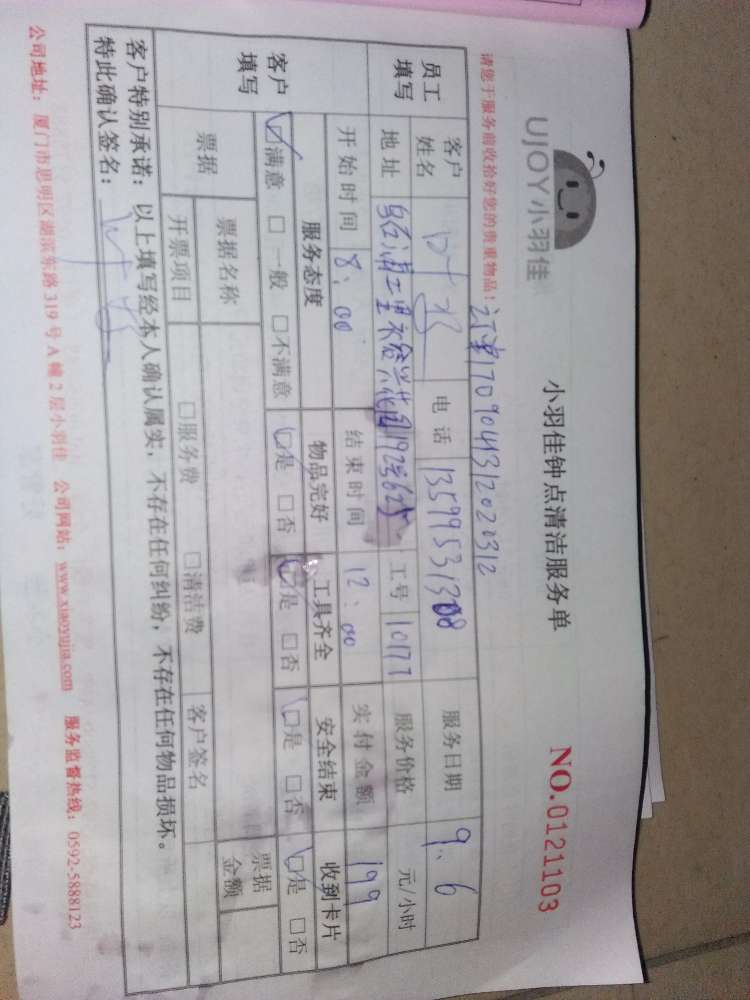 UJOY小羽佳
小羽佳钟点清洁服务单
NO.0121103
请您于服务前收拾好您的贵重物品！
订单17090431202031 2
员工填写
客户姓名 叶 电话 服务日期 9.6
地址 工号 10177 服务价格 元/小时
开始时间 8:00 结束时间 12:00 实付金额 199
客户填写
服务态度 物品完好 工具齐全 安全结束 收到卡片
☑满意 □一般 □不满意 ☑是 □否 ☑是 □否 ☑是 □否 ☑是 □否
票据 票据名称 票据金额
开票项目 □服务费 □清洁费 客户签名
客户特别承诺：以上填写经本人确认属实，不存在任何纠纷，不存在任何物品损坏。
特此确认签名：
公司地址：厦门市思明区湖滨东路319号A幢2层小羽佳 公司网站：www.xiaoyujia.com 服务监督热线：0592-5888123